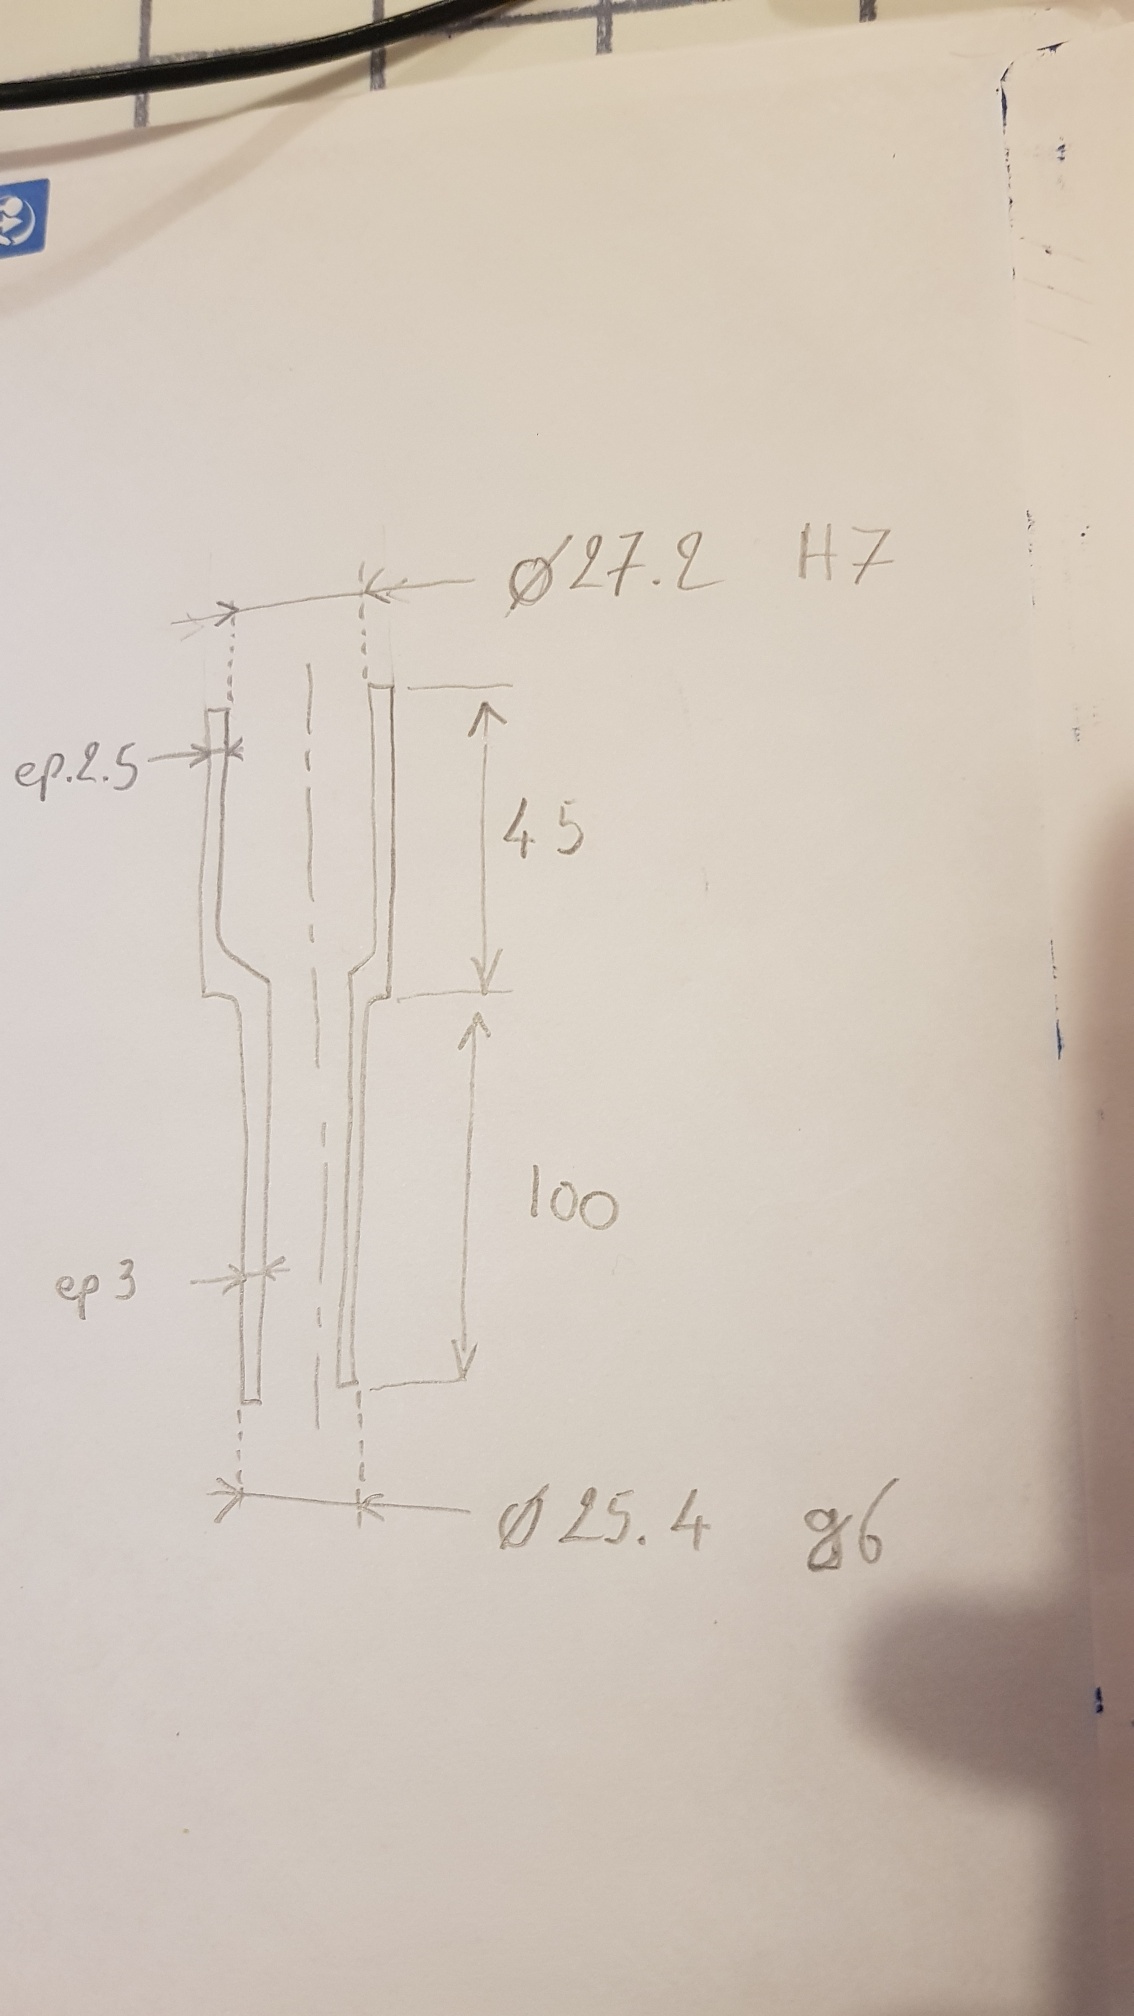 Ø27.2 H7
ep.2.5
45
100
ep 3
Ø 25.4 g6